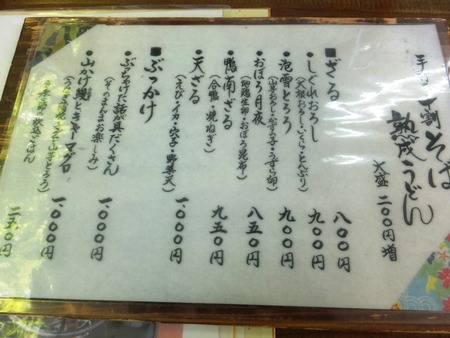 手打 十割そば
熟成うどん
大盛 二〇〇円増
■ざる 八〇〇円
・しぐれおろし 九〇〇円
(大根おろし・いくら・とんぶり)
・泡雪とろろ 九〇〇円
(山芋おろし・かずの子・うずら卵)
・おぼろ月夜 八五〇円
(地鶏生卵・おぼろ昆布)
・鴨南ざる 九五〇円
(合鴨・焼ねぎ)
・天ざる 一〇〇〇円
(えび・イカ・穴子・野菜天)
■ぶっかけ
・ぶちゃけた話が具だくさん 一〇〇〇円
(そのまんまお楽しみ)
・山かけ幾とキャーマグロ 一〇〇〇円
二五〇円